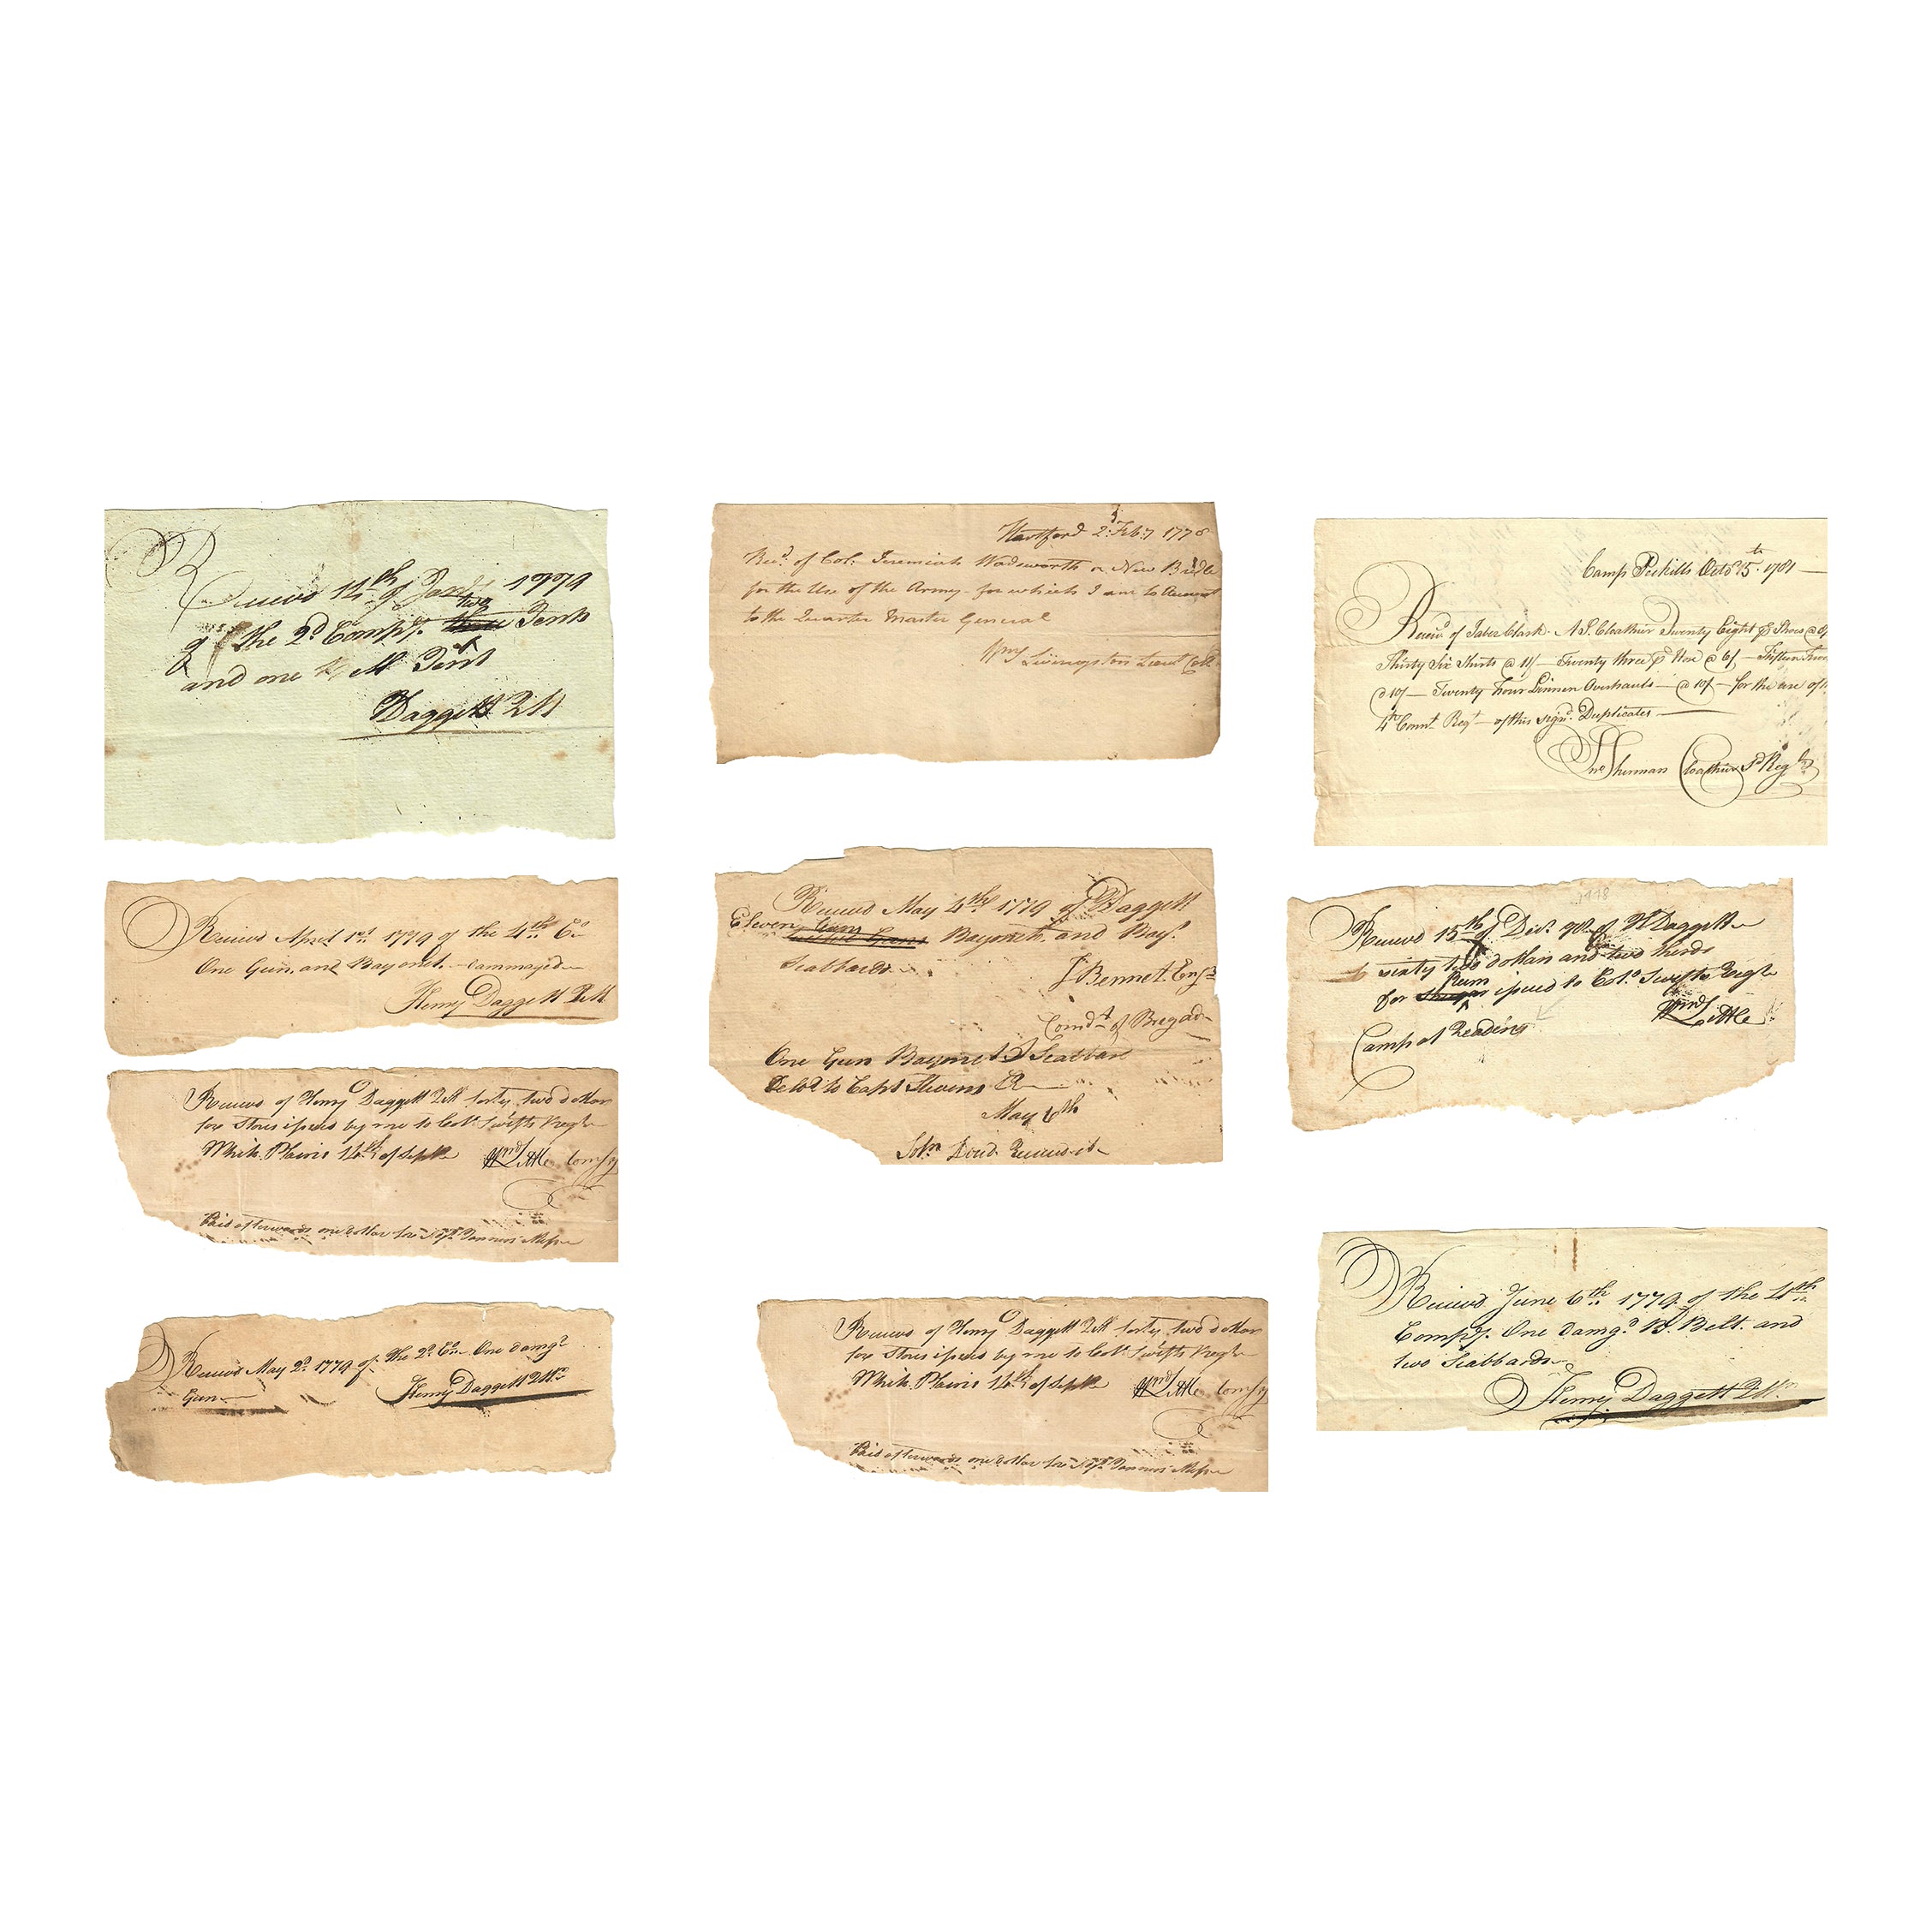 Receivd 14th of Jany 1779
of the 2d Compy. two Tents
and one M Tent
Daggett QM
Receivd April 1st 1779 of the 4th Co
One Gun and Bayonet. dammaged
Henry Daggett QM
Receivd of Henry Daggett QM forty two dollars
for Stores issued by me to Colo. Swifts Regt
White Plains 14th of Sept Wm Little Comsy
Paid afterwards one dollar for
Receivd May 2d 1779 of the 2d Co One damgd
Gun
Henry Daggett QMr
Hartford 2 Feby 1778
Recd. of Col. Jeremiah Wadsworth a New Bridle
for the Use of the Army for which I am to Account
to the Quarter Master General
Wm S Livingston Lieut Col
Receivd May 4th 1779 of Daggett
Eleven Guns Bayonets and Bayt.
Scabbards
J Bennet. Ensn
Comdt of Brigade
One Gun Bayonet & Scabbard
Delvd to Capt Stevens
May 6th
Receivd it
Receivd of Henry Daggett QM forty two dollars
for Stores issued by me to Colo. Swifts Regt
White Plains 14th of Sept Wm Little Comsy
Paid afterwards one dollar for
Camp Peekills Octo 15th. 1781
Receivd of Tabez Clark A S. Cloathier Twenty Eight pr Shoes @ 8/
Thirty Six Shirts @ 11/ Twenty three pr Hose @ 6/ Fifteen
@ 10/ Twenty Four Linnen Overhauls @ 10/ for the use of
4th Connt Regt of this signd. Duplicates
Jno Sherman Cloathier Sd Regt
1778
Receivd 15th of Decr. 78 of H Daggett
sixty two dollars and two thirds
for Rum issued to Colo. Swifts Regt
Camp at Reading Wm Little
Receivd June 6th 1779 of the 4th
Compy. One damgd B. Belt. and
two Scabbards
Henry Daggett QMr